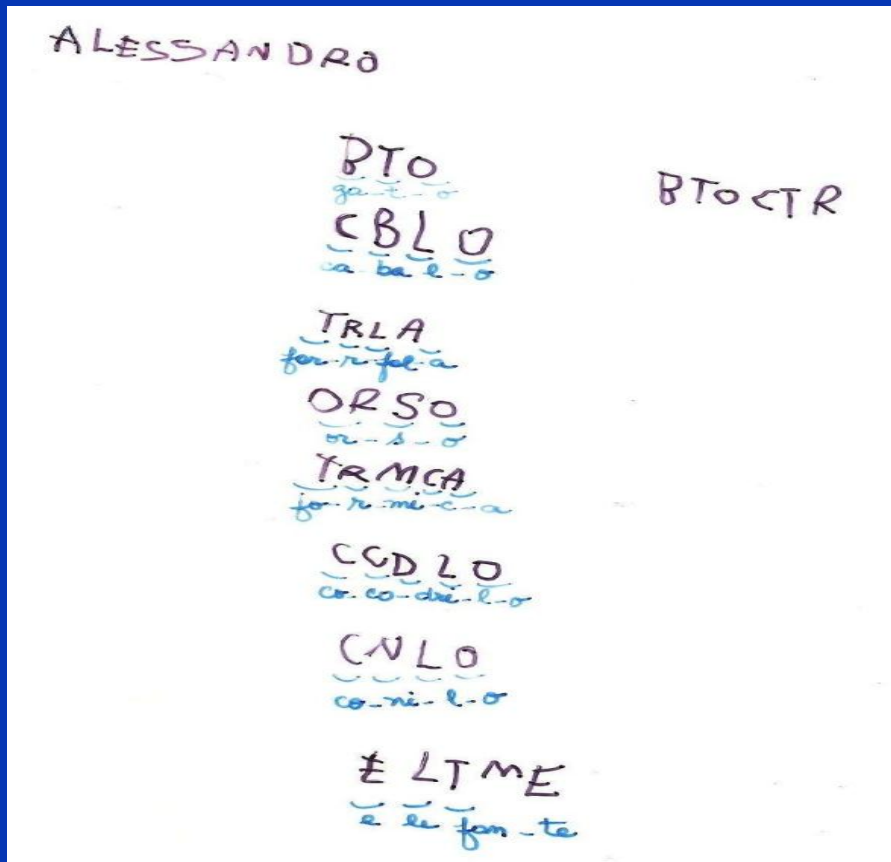 ALESSANDRO
BTO BTOCTR
ga-t-o
CBLO
ca ba l-o
TRLA
far-r-fal-a
ORSO
or-s-o
TRMCA
fo-r-mi-c-a
CCDLO
co-co-dri-l-o
CNLO
co-ni-l-o
ELTME
e le fan-te